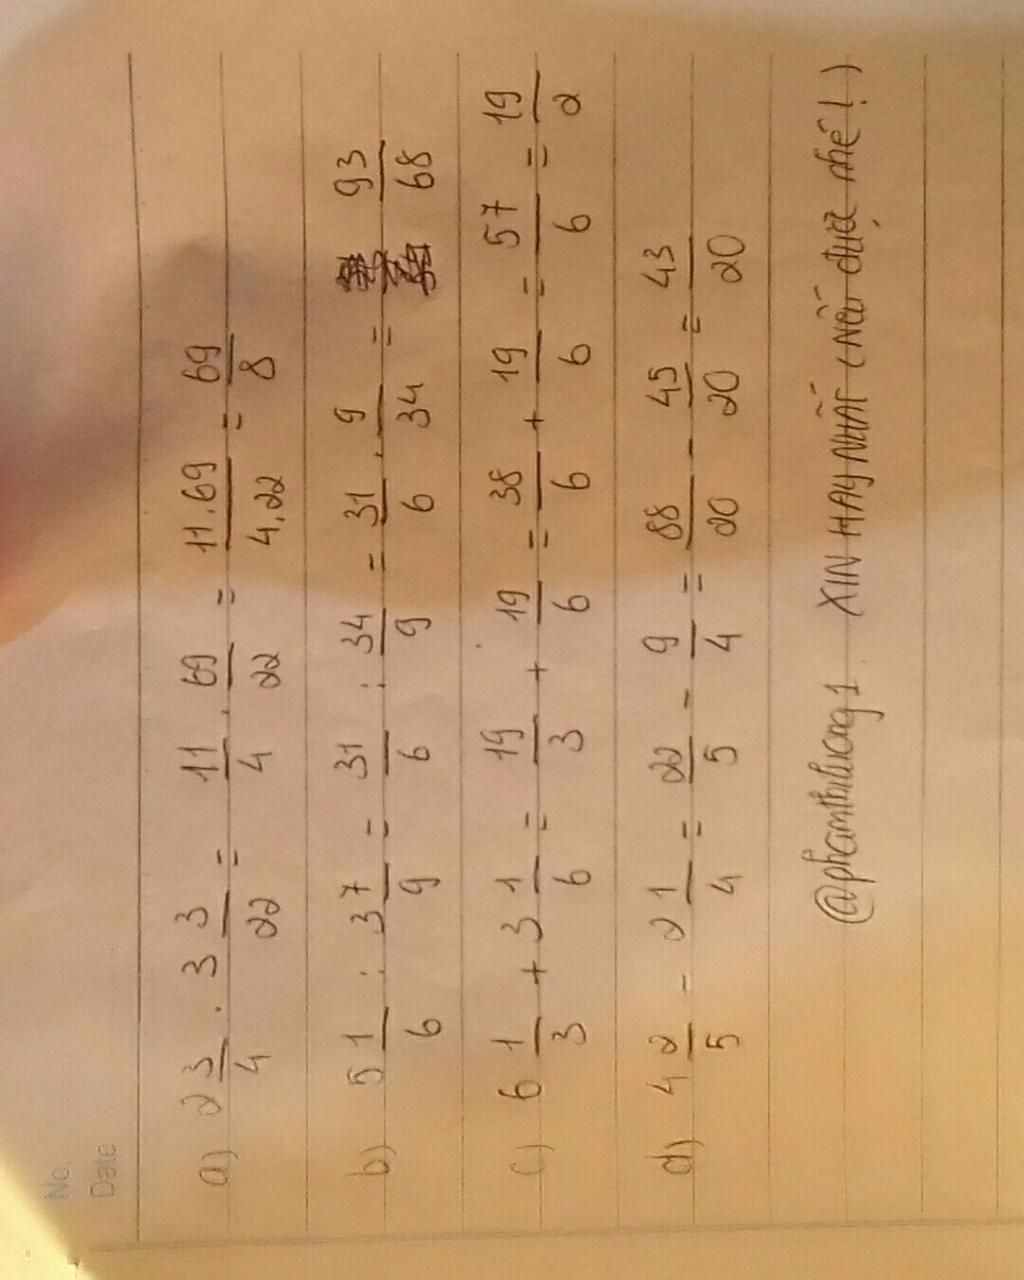 No.
Date
a) 2 3/4 . 3 3/22 = 11/4 . 69/22 = 11.69/4.22 = 69/8
b) 5 1/6 : 3 7/9 = 31/6 : 34/9 = 31/6 . 9/34 = 93/68
c) 6 1/3 + 3 1/6 = 19/3 + 19/6 = 38/6 + 19/6 = 57/6 = 19/2
d) 4 2/5 - 2 1/4 = 22/5 - 9/4 = 88/20 - 45/20 = 43/20
@phamthiluong1 XIN HAY NHẤT (Nếu được nhé!)